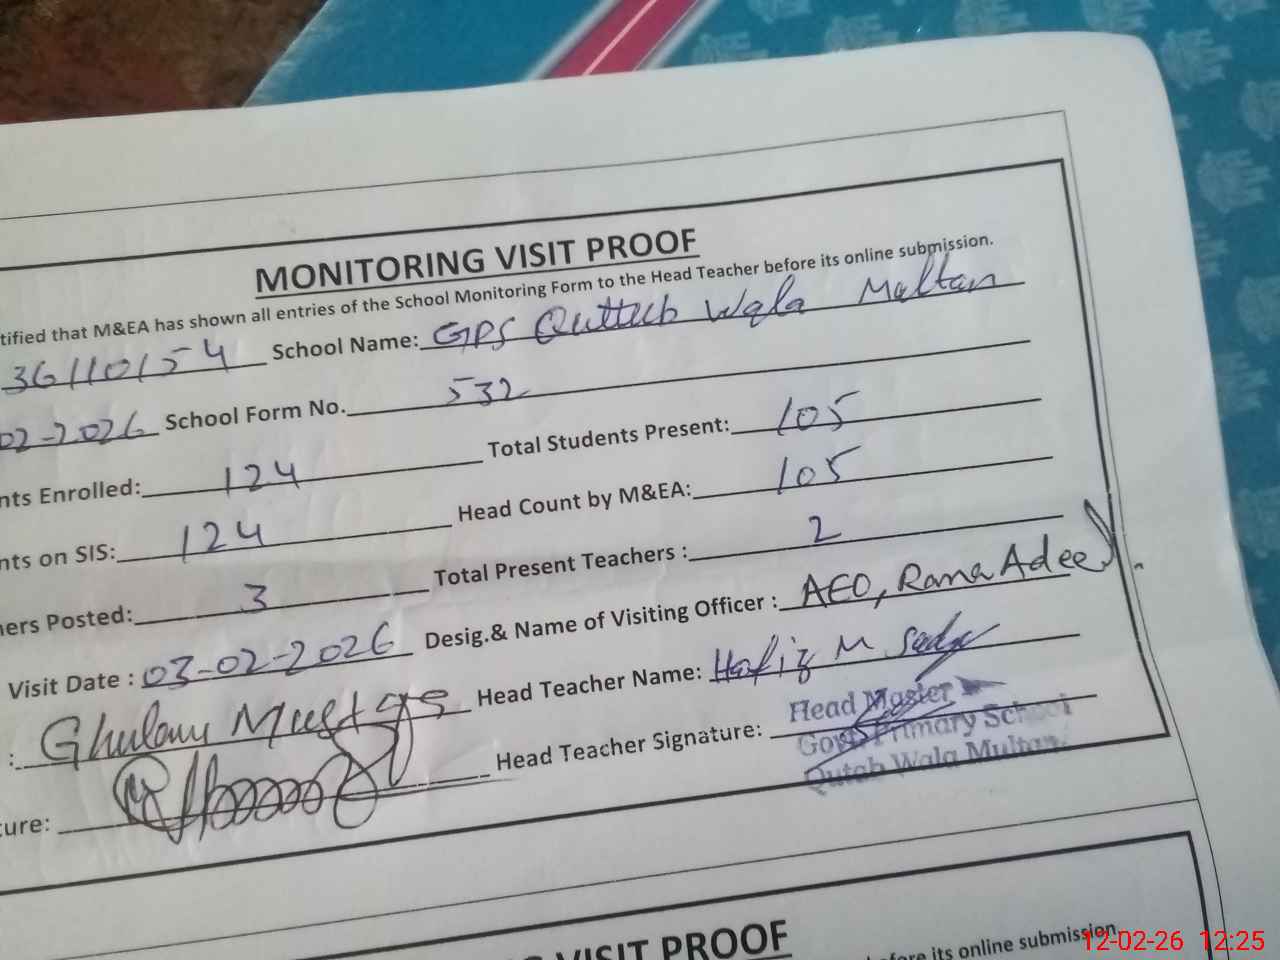 MONITORING VISIT PROOF
tified that M&EA has shown all entries of the School Monitoring Form to the Head Teacher before its online submission.
36110154 School Name: GPS Quttub Wala Multan
02-2026 School Form No. 532
nts Enrolled: 124 Total Students Present: 105
nts on SIS: 124 Head Count by M&EA: 105
ers Posted: 3 Total Present Teachers : 2
Visit Date : 03-02-2026 Desig.& Name of Visiting Officer : AEO, Rana Adeel.
: Ghulam Mustafa Head Teacher Name: Hafiz M
ure: Head Teacher Signature:
Head Master
Govt. Primary School
Qutab Wala Multan
VISIT PROOF
fore its online submission.
12-02-26 12:25